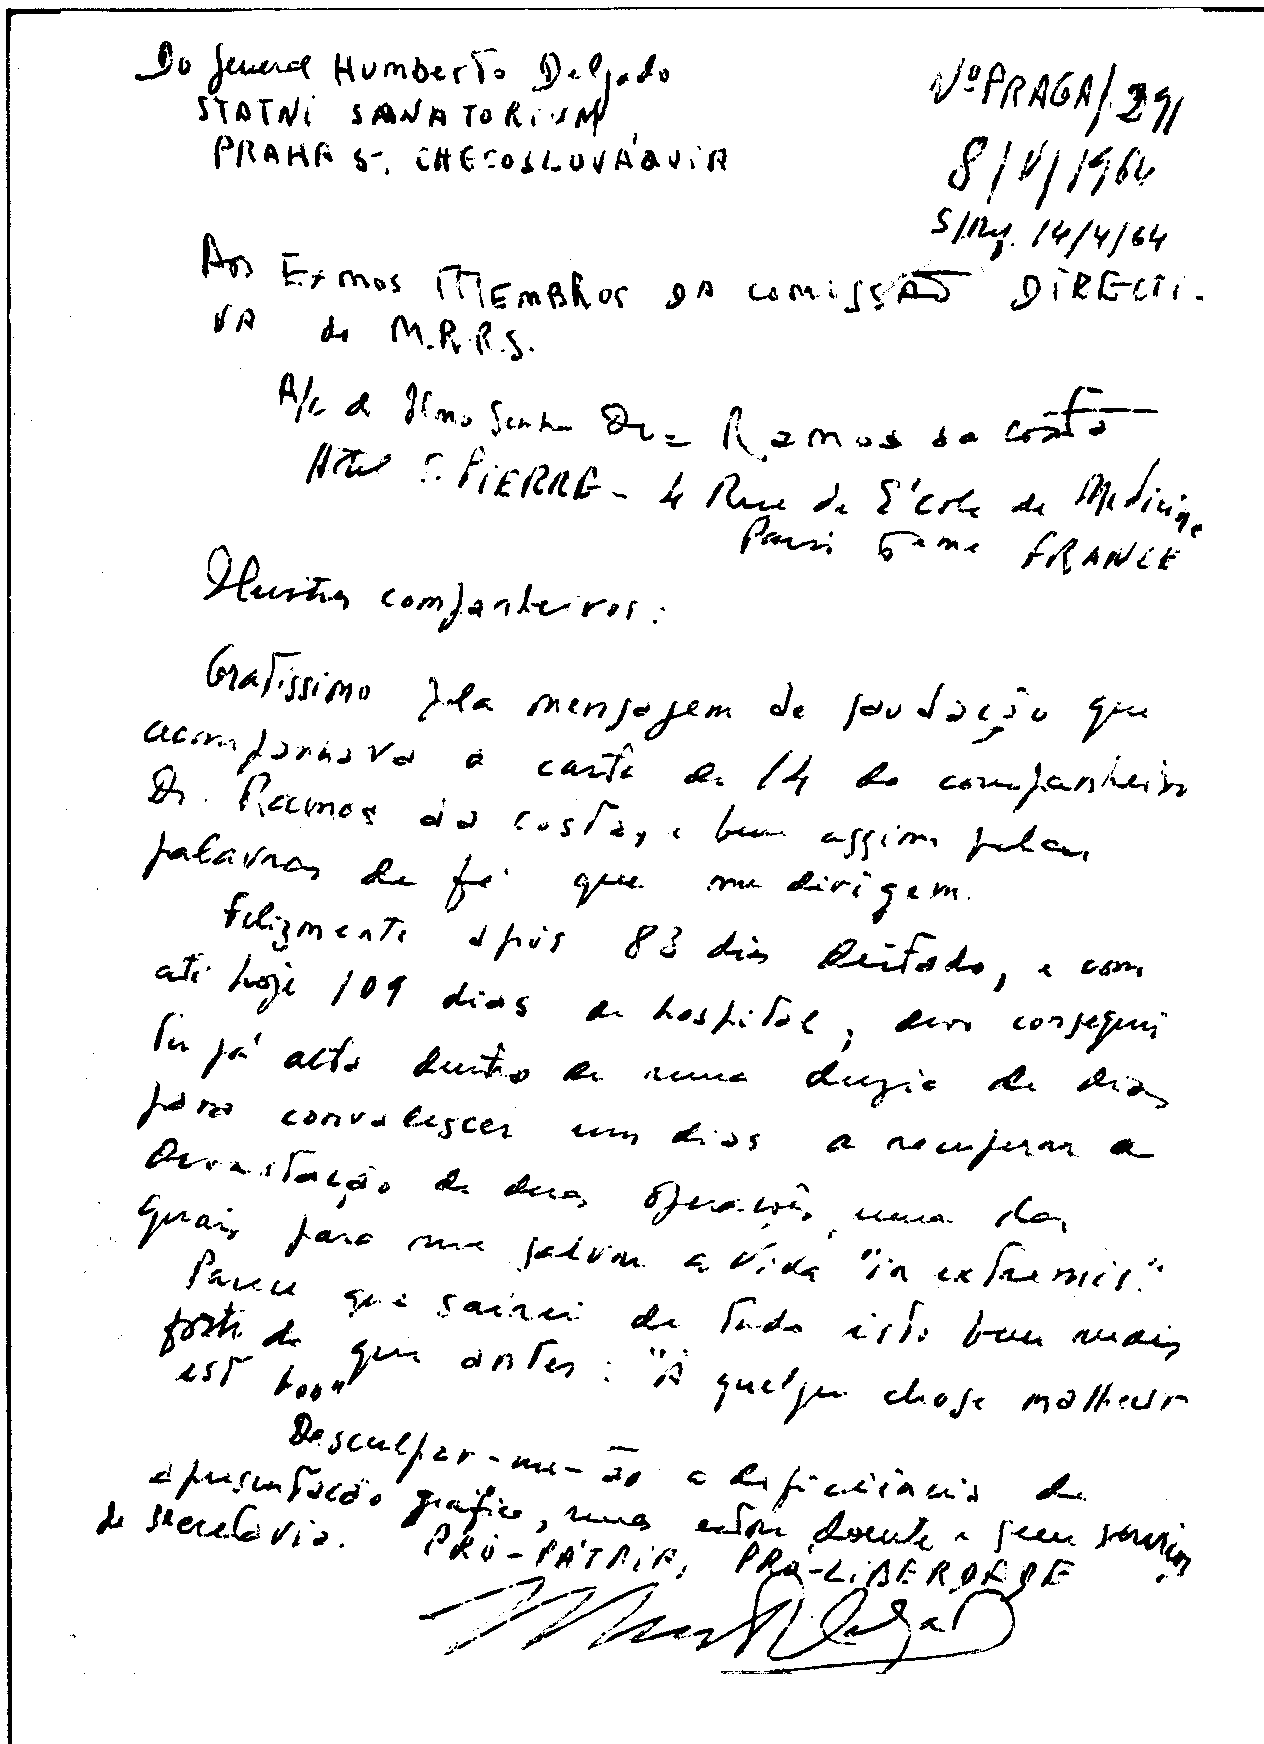 Do General Humberto Delgado
STATNI SANATORIUM
PRAHA 5-, CHECOSLOVÁQUIA
Nº PRAGA/291
8/V/1964
S/Ref. 14/4/64
Aos Exmos MEMBROS DA COMISSÃO DIRECTI-
VA da M.R.R.S.
A/c do Ilmo Senhor Dr. Ramos da Costa
Hotel S. PIERRE - 4 Rue de l'École de Medicine
Paris 6eme FRANCE
Ilustres companheiros:
Gratissimo pela mensagem de saudação que
acompanhava a carta de 14 do companheiro
Dr. Ramos da Costa, e bem assim pelas
palavras de fé que me dirigem.
Felizmente após 83 dias deitado, e com
até hoje 109 dias de hospital, devo conseguir
ter já alta dentro de uma duzia de dias
para convalescer uns dias a recuperar a
devastação de duas operações, uma das
quais para me salvar a vida "in extremis."
Parece que sairei de tudo isto bem mais
forte do que antes: "À quelque chose malheur
est bon"
Desculpar-me-ão a deficiência de
apresentação gráfica, mas estou doente e sem serviços
de secretaria. PRÓ-PÁTRIA, PRÓ-LIBERDADE